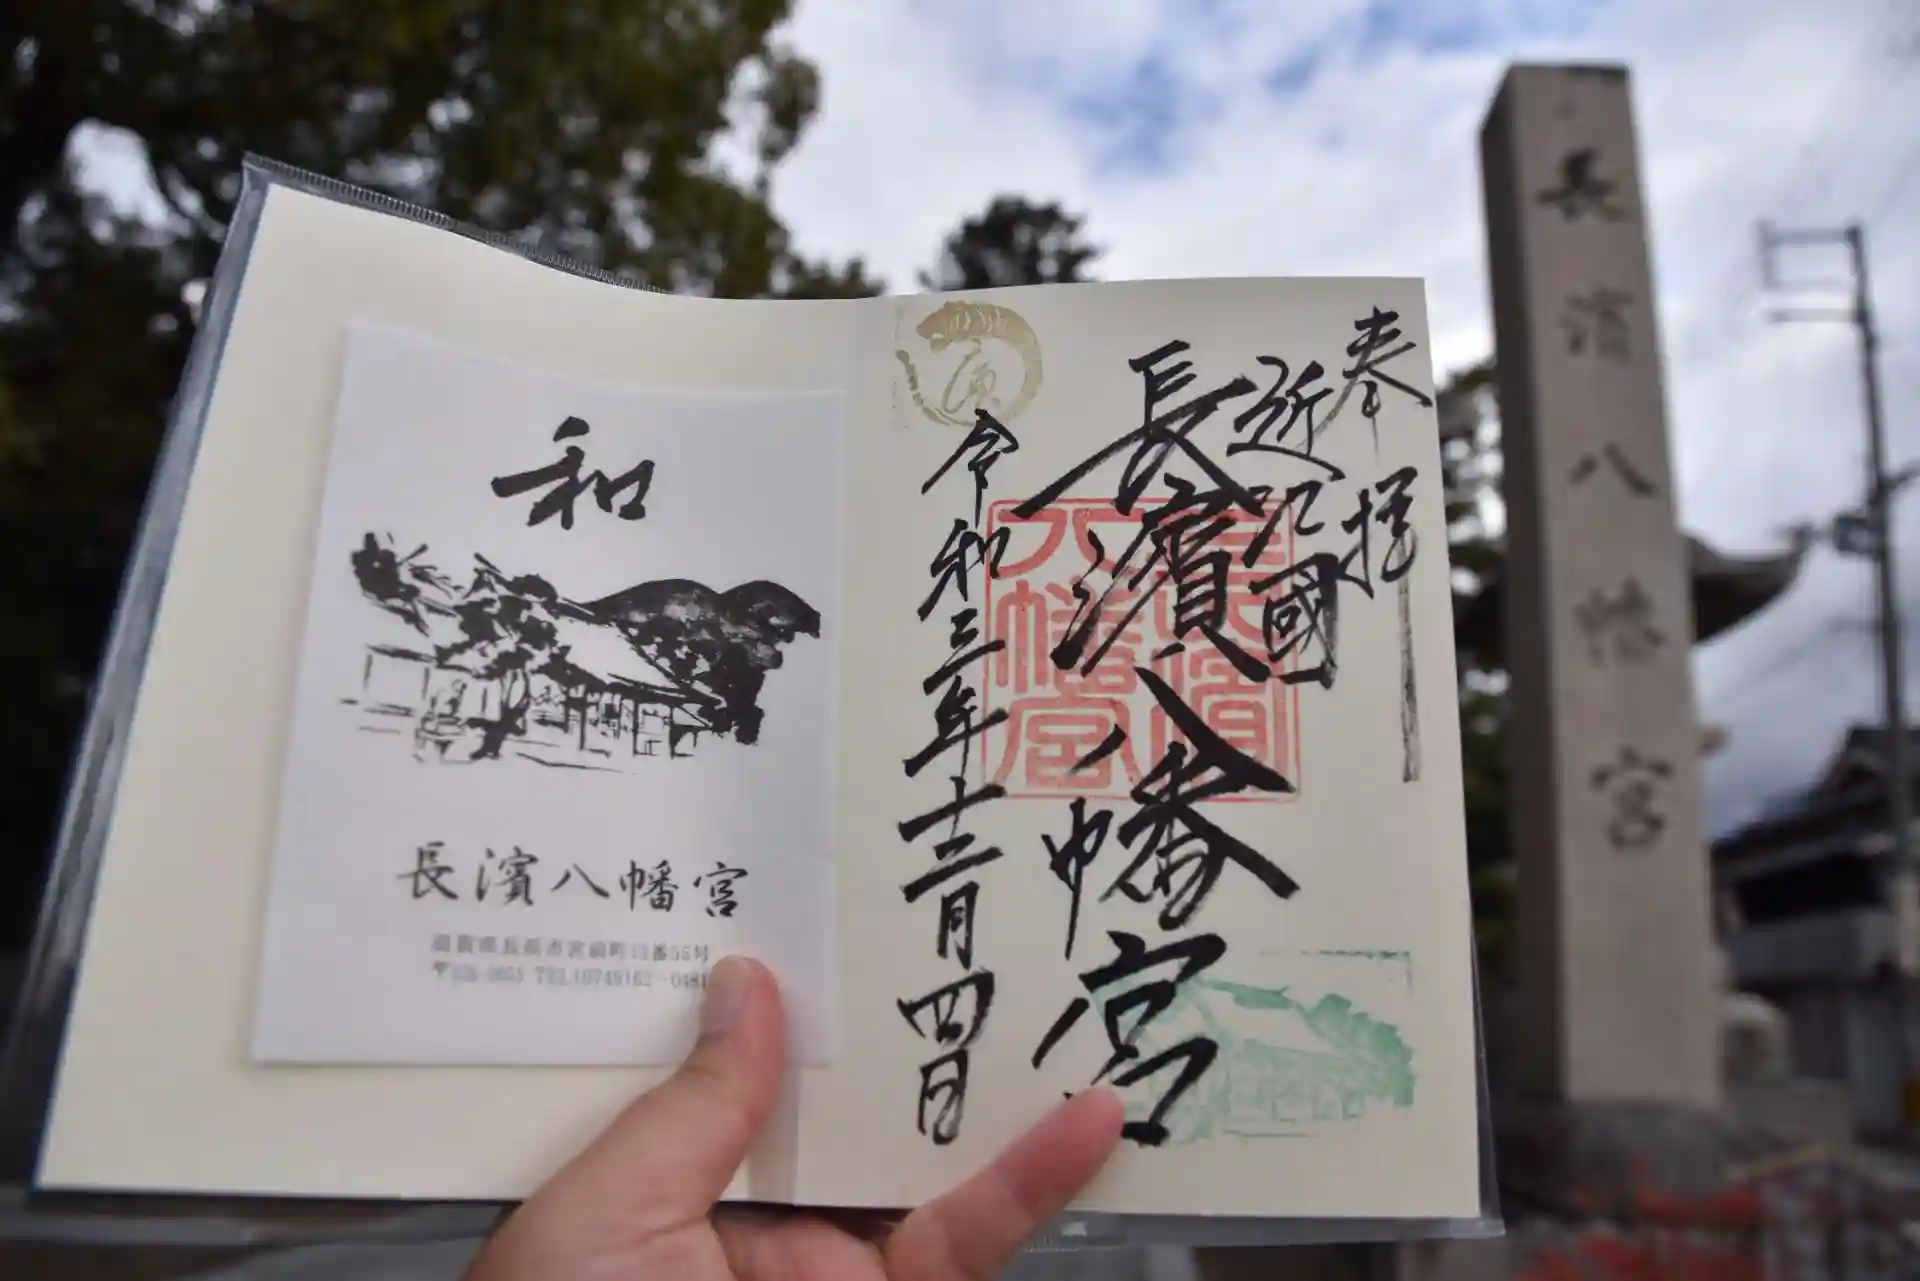 和
長濱八幡宮
滋賀県長浜市宮前町13番55号
〒526-0053 TEL(0749)62-0481
奉拝
近江國
長濱八幡宮
令和三年十二月四日
長濱
八幡宮
長濱八幡宮